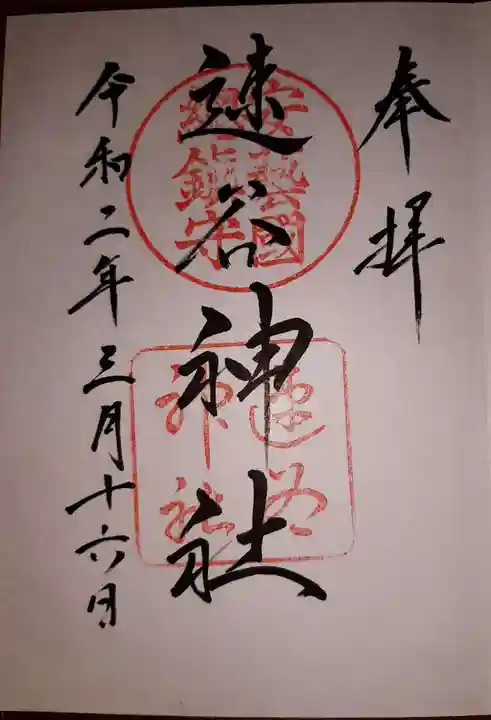 奉拝
速谷神社
安藝國
總鎮守
速谷
神社
令和二年三月十六日